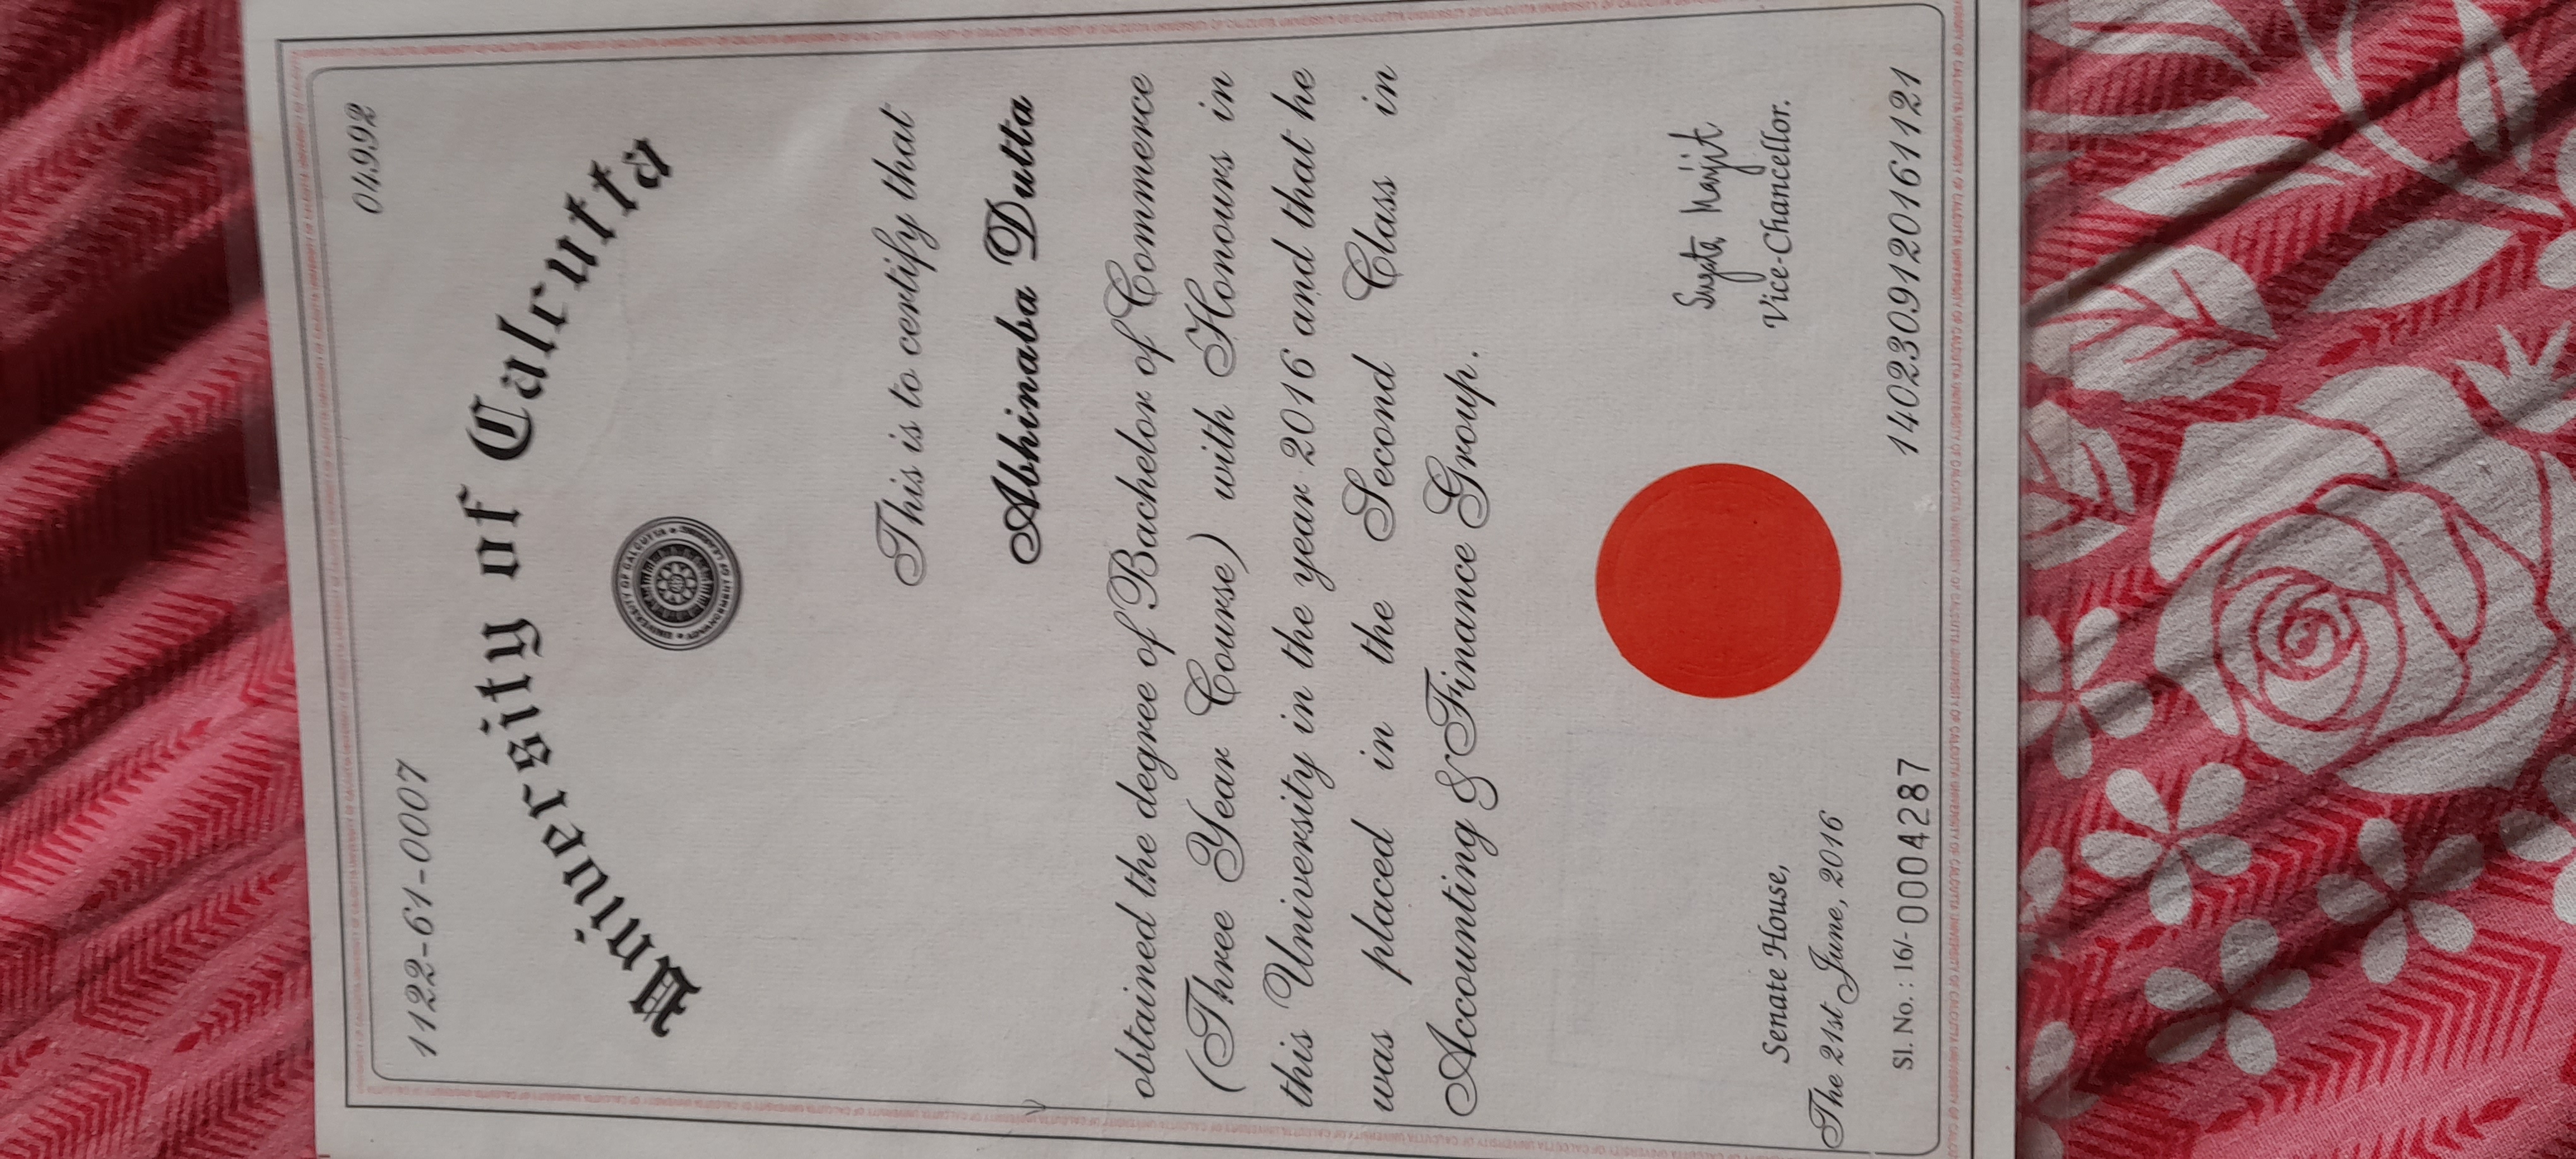 04992
1122-61-0007
University of Calcutta
This is to certify that
Abhinaba Dutta
obtained the degree of Bachelor of Commerce
(Three Year Course) with Honours in
this University in the year 2016 and that he
was placed in the Second Class in
Accounting & Finance Group.
Senate House,
The 21st June, 2016
Vice-Chancellor.
Sl. No. : 16/- 0004287
1402309120161121